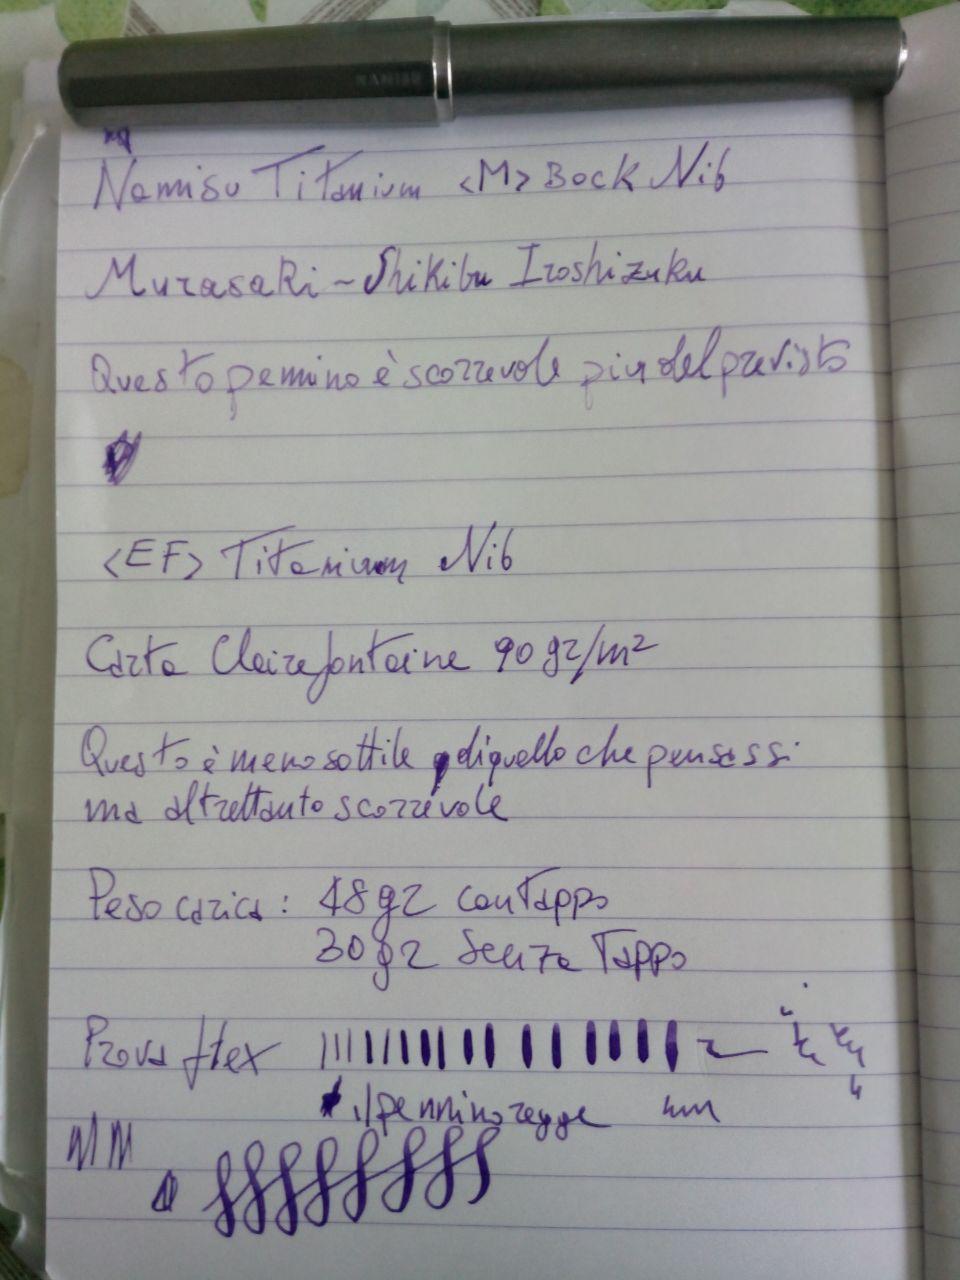 NAMISU
Namisu Titanium <M> BOCK Nib
Murasaki ~ Shikibu Iroshizuku
Questo pennino è scorrevole più del previsto
<EF> Titanium Nib
Carta Clairefontaine 90 gr/m²
Questo è meno sottile di quello che pensassi
ma altrettanto scorrevole
Peso carica: 48 gr con Tappo
30 gr Senza Tappo
Prova flex
il pennino regge